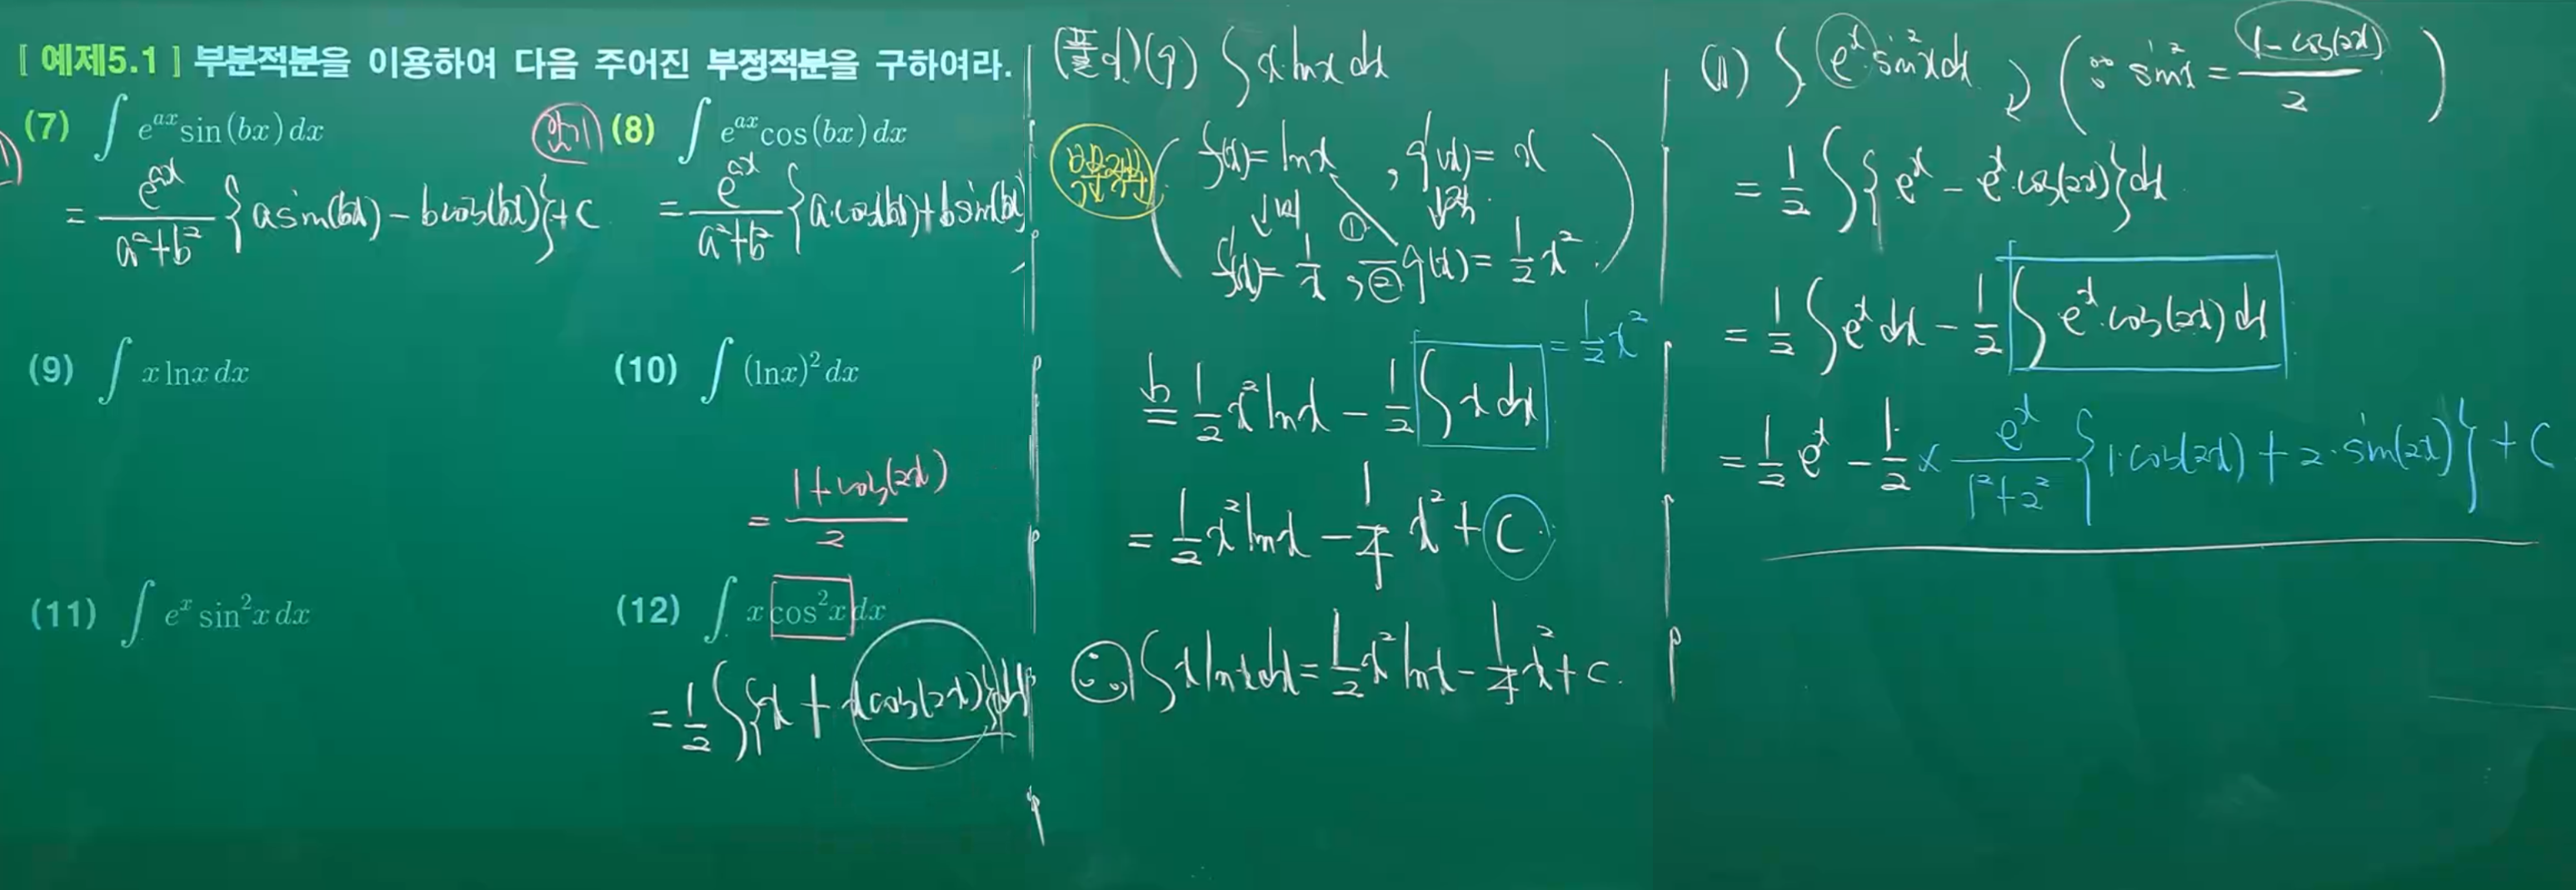 [ 예제5.1 ] 부분적분을 이용하여 다음 주어진 부정적분을 구하여라.
(7) ∫ e^{ax} sin(bx) dx
= e^{ax}/(a²+b²) {a sin(bx) − b cos(bx)} + C
암기 (8) ∫ e^{ax} cos(bx) dx
= e^{ax}/(a²+b²) {a·cos(bx) + b sin(bx)
(9) ∫ x lnx dx
(10) ∫ (lnx)² dx
(11) ∫ e^x sin²x dx
= (1+cos(2x))/2
(12) ∫ x cos²x dx
= 1/2 ∫{x + x cos(2x)}dx
(풀이) (9) ∫ x ln x dx
부분적분
( f(x) = ln x , g'(x) = x
↓미 ① ↓적
f'(x) = 1/x , ② g(x) = 1/2 x² )
b= 1/2 x² ln x − 1/2 ∫ x dx = 1/2 x²
= 1/2 x² ln x − 1/4 x² + C
∴ ∫ x ln x dx = 1/2 x² ln x − 1/4 x² + C.
(11) ∫ e^x sin²x dx (∵ sin²x = (1−cos(2x))/2)
= 1/2 ∫{e^x − e^x·cos(2x)}dx
= 1/2 ∫ e^x dx − 1/2 ∫ e^x·cos(2x) dx
= 1/2 e^x − 1/2 × e^x/(1²+2²) {1·cos(2x) + 2·sin(2x)} + C